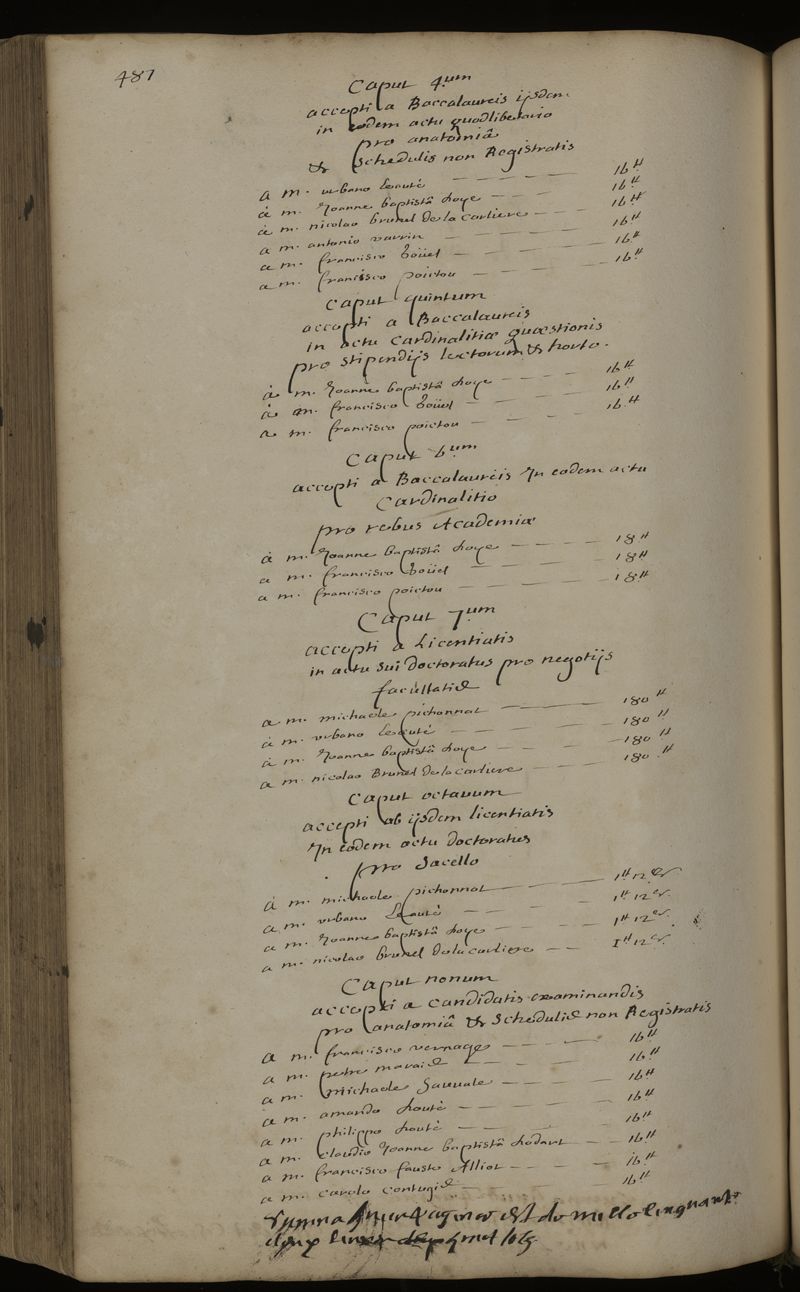 487
Caput 4um
accepti a Baccalaureis ijsdem
in eodem actu quodlibetario
pro anatomiâ
& schedulis non Registratis
a m. urbano Leauté — — — — 16 ₶
à m. Joanne baptistâ doye — — — 16 ₶
à m. nicolao brunel de la carliere — — 16 ₶
a m. antonio varrin — — — — 16 ₶
a m. francisco boüel — — — — 16 ₶
a m. francisco poictou — — — — 16 ₶
Caput quintum
accepti a Baccalaureis
in actu Cardinalitiæ quæstionis
pro stipendijs lectorum & horto.
à m. Joanne baptistâ doye — — — 16 ₶
à m. francisco boüel — — — — 16 ₶
a m. francisco poictou — — — 16 ₶
Caput 6um
accepti a Baccalaureis In eodem actu
Cardinalitio
pro rebus Academiæ
à m. Joanne baptistâ doye — — — 18 ₶
a m. francisco boüel — — — 18 ₶
a m. francisco poictou — — — 18 ₶
Caput 7um
accepti a Licentiatis
in actu sui doctoratus pro negotijs
facultatis
a m. michaele pichonnat — — — 180 ₶
à m. urbano Leauté — — — 180 ₶
à m. Joanne baptistâ doye — — — 180 ₶
a m. nicolao Brunel de la carliere — — — 180 ₶
Caput octauum
accepti ab ijsdem licentiatis
In eodem actu doctoratus
pro sacello
à m. michaele pichonnat — — — 1 ₶ 12
a m. urbano Leauté — — — 1 ₶ 12
a m. Joanne baptistâ doye — — — 1 ₶ 12
a m. nicolao brunel de la carliere — — 1 ₶ 12
Caput nonum
accepti a candidatis examinandis
pro anatomiâ & schedulis non Registratis
a m. francisco vernage — — — 16 ₶
a m. petro marais — — — 16 ₶
a m. michaele sauuale — — — 16 ₶
a m. amando douté — — — 16 ₶
a m. philippo douté — — — 16 ₶
a m. claudio Joanne baptistâ dodart — — 16 ₶
a m. francisco fausto Alliot — — — 16 ₶
a m. carolo contugis — — — 16 ₶
summa est de mille cinquante